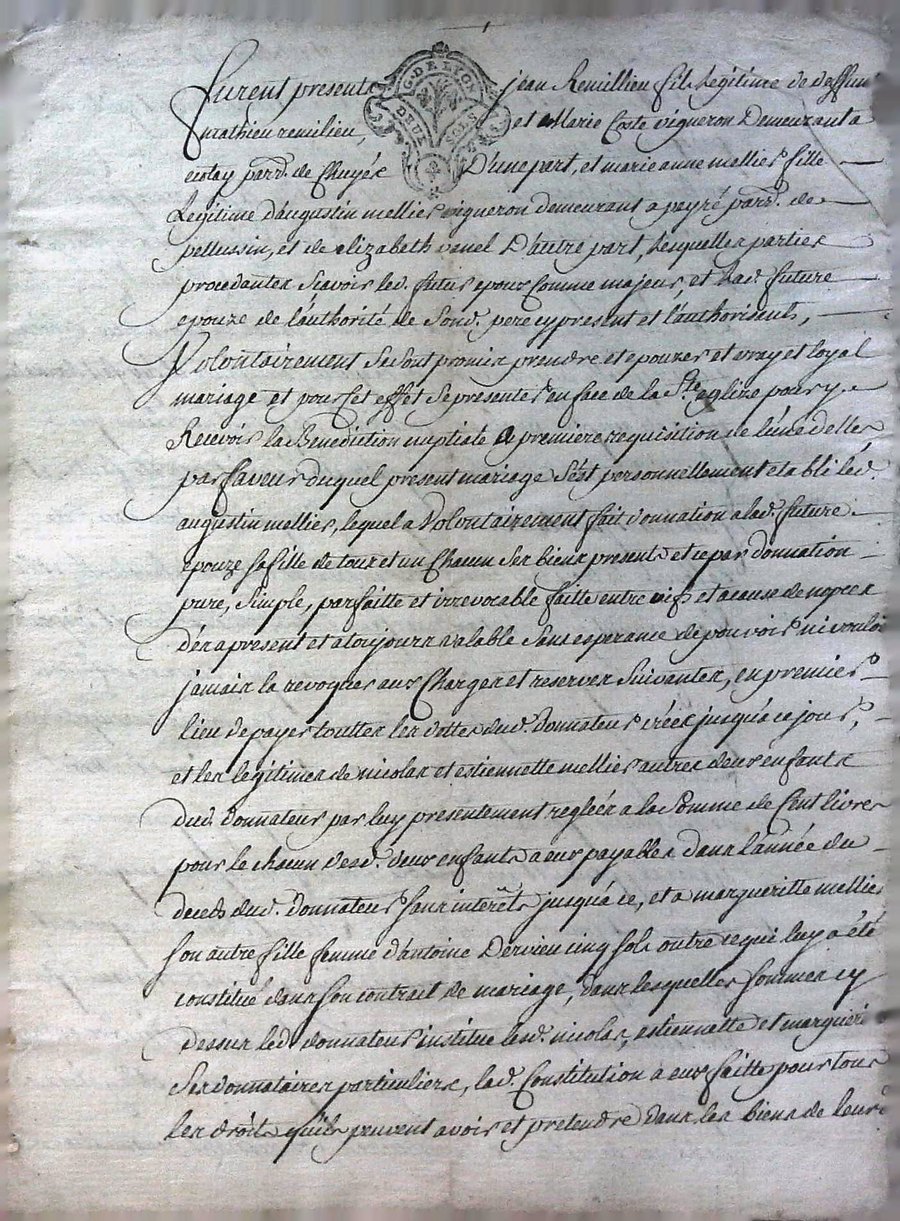 furent presents jean Remillieu fils Legitime de deffunt
mathieu remilieu, et Marie Coste vigneron Demeurant a
parr. de Chuyés D'une part, et marie anne mellier fille
Legitime d'augustin mellier vigneron demeurant a peyré parr. de
pellussin, et de elizabeth vanel D'autre part, Lesquelles parties
procedantes Scavoir led. futur epoux Comme majeur, et Lad. future
epouze de l'authorité de Sond. pere cy present et l'authorisent,
Volontairement Se Sont promis prendre et epouzer et vray et loyal
mariage et pour Cet effét Se presenter en face de la Ste. eglize pour y
Recevoir la Benediction nuptiale a premiere requisition de l'une delles
par faveur duquel present mariage S'est personnellement etabli led.
augustin mellier, lequel a Volontairement fait donnation a lad. future
epouze sa fille de tous et un Chacun Ses biens presents et ce par donnation
pure, Simple, parfaitte et irrevocable faitte entre vifs et a cause de nopces
dés a present et a toujours valable Sans esperance de pouvoir ni vouloir
jamais la revoquer aux Charges et reserves Suivantes, en premier
lieu de payer touttes les dettes dud. Donnateur créés jusqu'a ce jour,
et les legitimes de nicolas et estiennette mellier autres deux enfants
dud. Donnateur par luy presentement regleés a la Somme de Cent livres
pour le chacun desd. deux enfants a eux payables dans l'année du
decés dud. Donnateur sans interêts jusqu'a ce, et a margueritte mellier
son autre fille femme d'antoine Dervieu cinq sols outre ce qui luy a été
constitué dans son contrat de mariage, dans lesquelles sommes cy
dessus led. donnateur institue lesd. nicolas, estiennette et marguerite
Ses donnataires particuliers, lad. Constitution a eux faitte pour tous
les droits qu'ils peuvent avoir et pretendre dans les biens de leurd.
G. DE LYON
DEUX SOLS